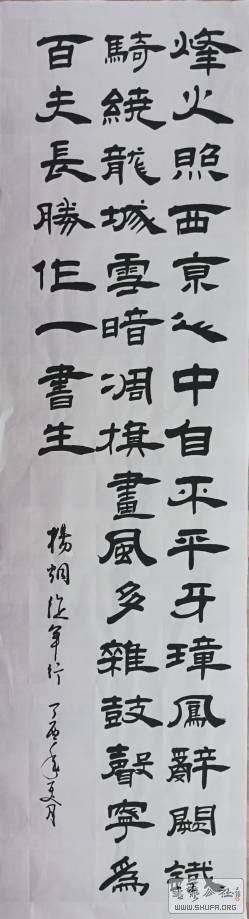 烽火照西亰心中自不平牙璋鳳辭闕鐵
騎繞龍城雪暗凋旗畫風多雜鼓聲寧為
百夫長勝作一書生
楊炯從軍行 丁酉年夏月
WWW.SHUFA.ORG